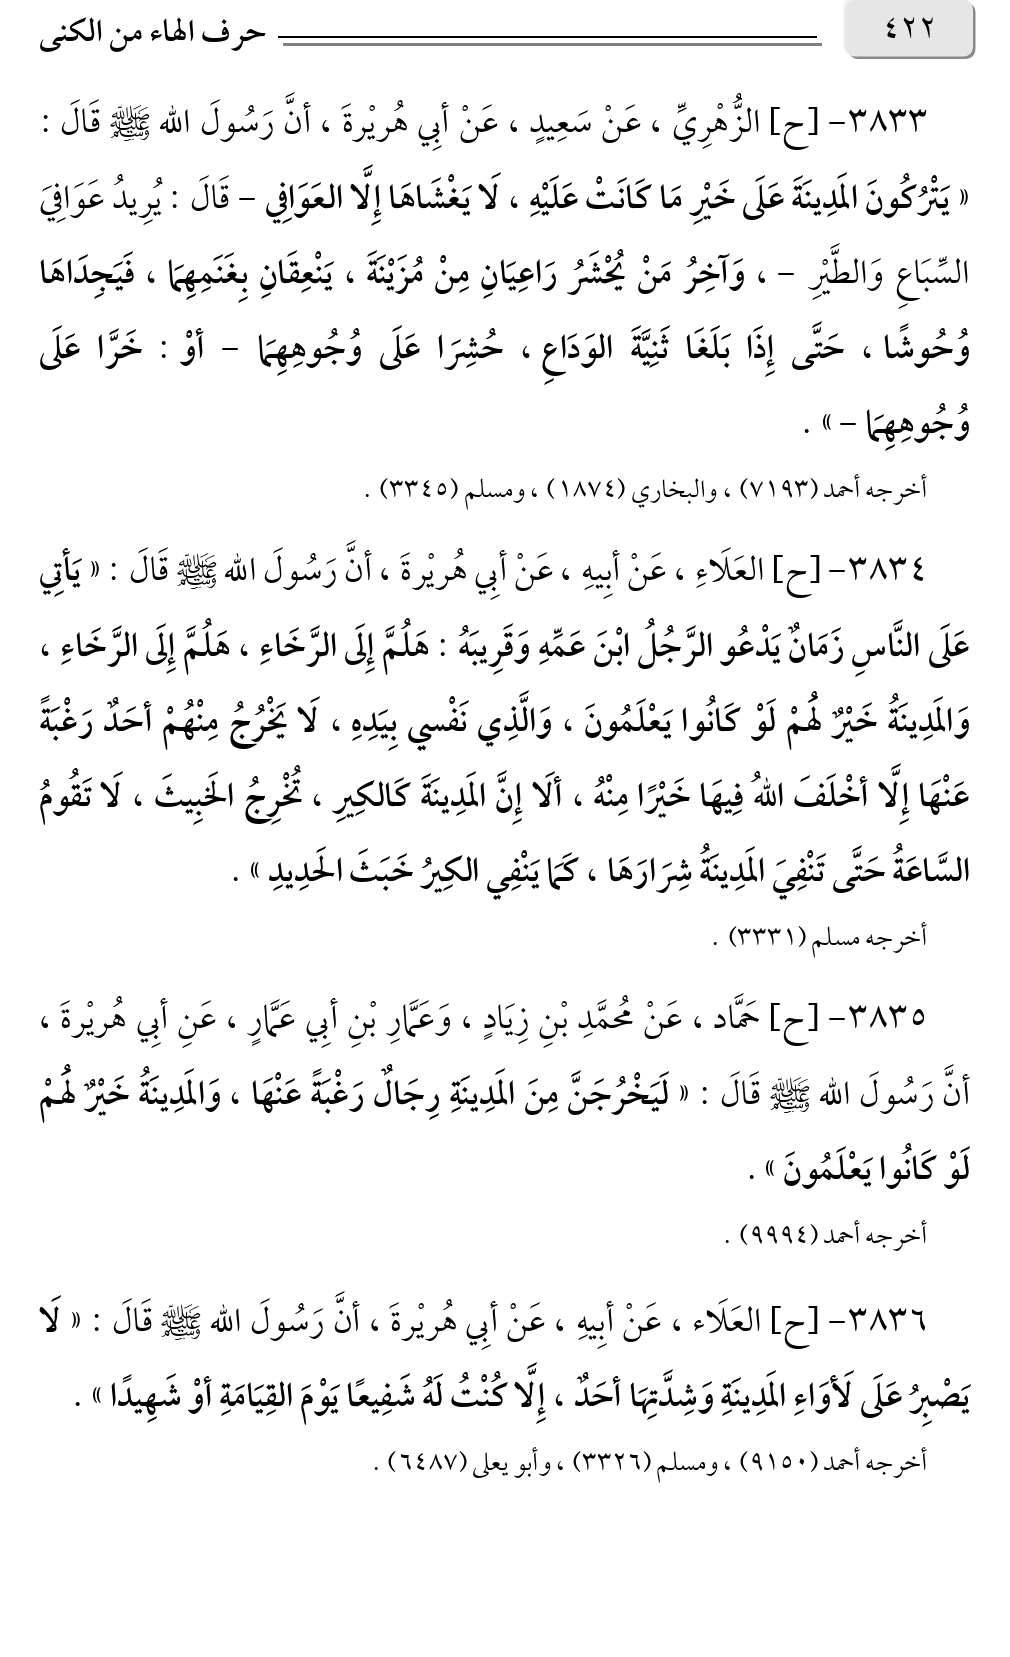 ٤٢٢
حرف الهاء من الكنى
٣٨٣٣- [ح] الزُّهْرِيِّ ، عَنْ سَعِيدٍ ، عَنْ أَبِي هُرَيْرةَ ، أنَّ رَسُولَ الله ﷺ قَالَ :
« يَتْرُكُونَ المَدِينَةَ عَلَى خَيْرِ مَا كَانَتْ عَلَيْهِ ، لَا يَغْشَاهَا إِلَّا العَوَافِي – قَالَ : يُرِيدُ عَوَافِيَ
السِّبَاعِ وَالطَّيْرِ – ، وَآخِرُ مَنْ يُحْشَرُ رَاعِيَانِ مِنْ مُزَيْنَةَ ، يَنْعِقَانِ بِغَنَمِهِمَا ، فَيَجِدَاهَا
وُحُوشًا ، حَتَّى إِذَا بَلَغَا ثَنِيَّةَ الوَدَاعِ ، حُشِرَا عَلَى وُجُوهِهِمَا – أوْ : خَرَّا عَلَى
وُجُوهِهِمَا – » .
أخرجه أحمد (٧١٩٣) ، والبخاري (١٨٧٤) ، ومسلم (٣٣٤٥) .
٣٨٣٤- [ح] العَلَاءِ ، عَنْ أَبِيهِ ، عَنْ أَبِي هُرَيْرةَ ، أنَّ رَسُولَ الله ﷺ قَالَ : « يَأتِي
عَلَى النَّاسِ زَمَانٌ يَدْعُو الرَّجُلُ ابْنَ عَمِّهِ وَقَرِيبَهُ : هَلُمَّ إِلَى الرَّخَاءِ ، هَلُمَّ إِلَى الرَّخَاءِ ،
وَالمَدِينَةُ خَيْرٌ لَهُمْ لَوْ كَانُوا يَعْلَمُونَ ، وَالَّذِي نَفْسي بِيَدِهِ ، لَا يَخْرُجُ مِنْهُمْ أحَدٌ رَغْبَةً
عَنْهَا إِلَّا أخْلَفَ اللهُ فِيهَا خَيْرًا مِنْهُ ، ألَا إِنَّ المَدِينَةَ كَالكِيرِ ، تُخْرِجُ الخَبِيثَ ، لَا تَقُومُ
السَّاعَةُ حَتَّى تَنْفِيَ المَدِينَةُ شِرَارَهَا ، كَمَا يَنْفِي الكِيرُ خَبَثَ الحَدِيدِ » .
أخرجه مسلم (٣٣٣١) .
٣٨٣٥- [ح] حَمَّاد ، عَنْ مُحَمَّدِ بْنِ زِيَادٍ ، وَعَمَّارِ بْنِ أبِي عَمَّارٍ ، عَنِ أبِي هُرَيْرةَ ،
أنَّ رَسُولَ الله ﷺ قَالَ : « لَيَخْرُجَنَّ مِنَ المَدِينَةِ رِجَالٌ رَغْبَةً عَنْهَا ، وَالمَدِينَةُ خَيْرٌ لَهُمْ
لَوْ كَانُوا يَعْلَمُونَ » .
أخرجه أحمد (٩٩٩٤) .
٣٨٣٦- [ح] العَلَاء ، عَنْ أَبِيهِ ، عَنْ أَبِي هُرَيْرةَ ، أنَّ رَسُولَ الله ﷺ قَالَ : « لَا
يَصْبِرُ عَلَى لَأوَاءِ المَدِينَةِ وَشِدَّتِهَا أحَدٌ ، إِلَّا كُنْتُ لَهُ شَفِيعًا يَوْمَ القِيَامَةِ أوْ شَهِيدًا » .
أخرجه أحمد (٩١٥٠) ، ومسلم (٣٣٢٦) ، وأبو يعلى (٦٤٨٧) .